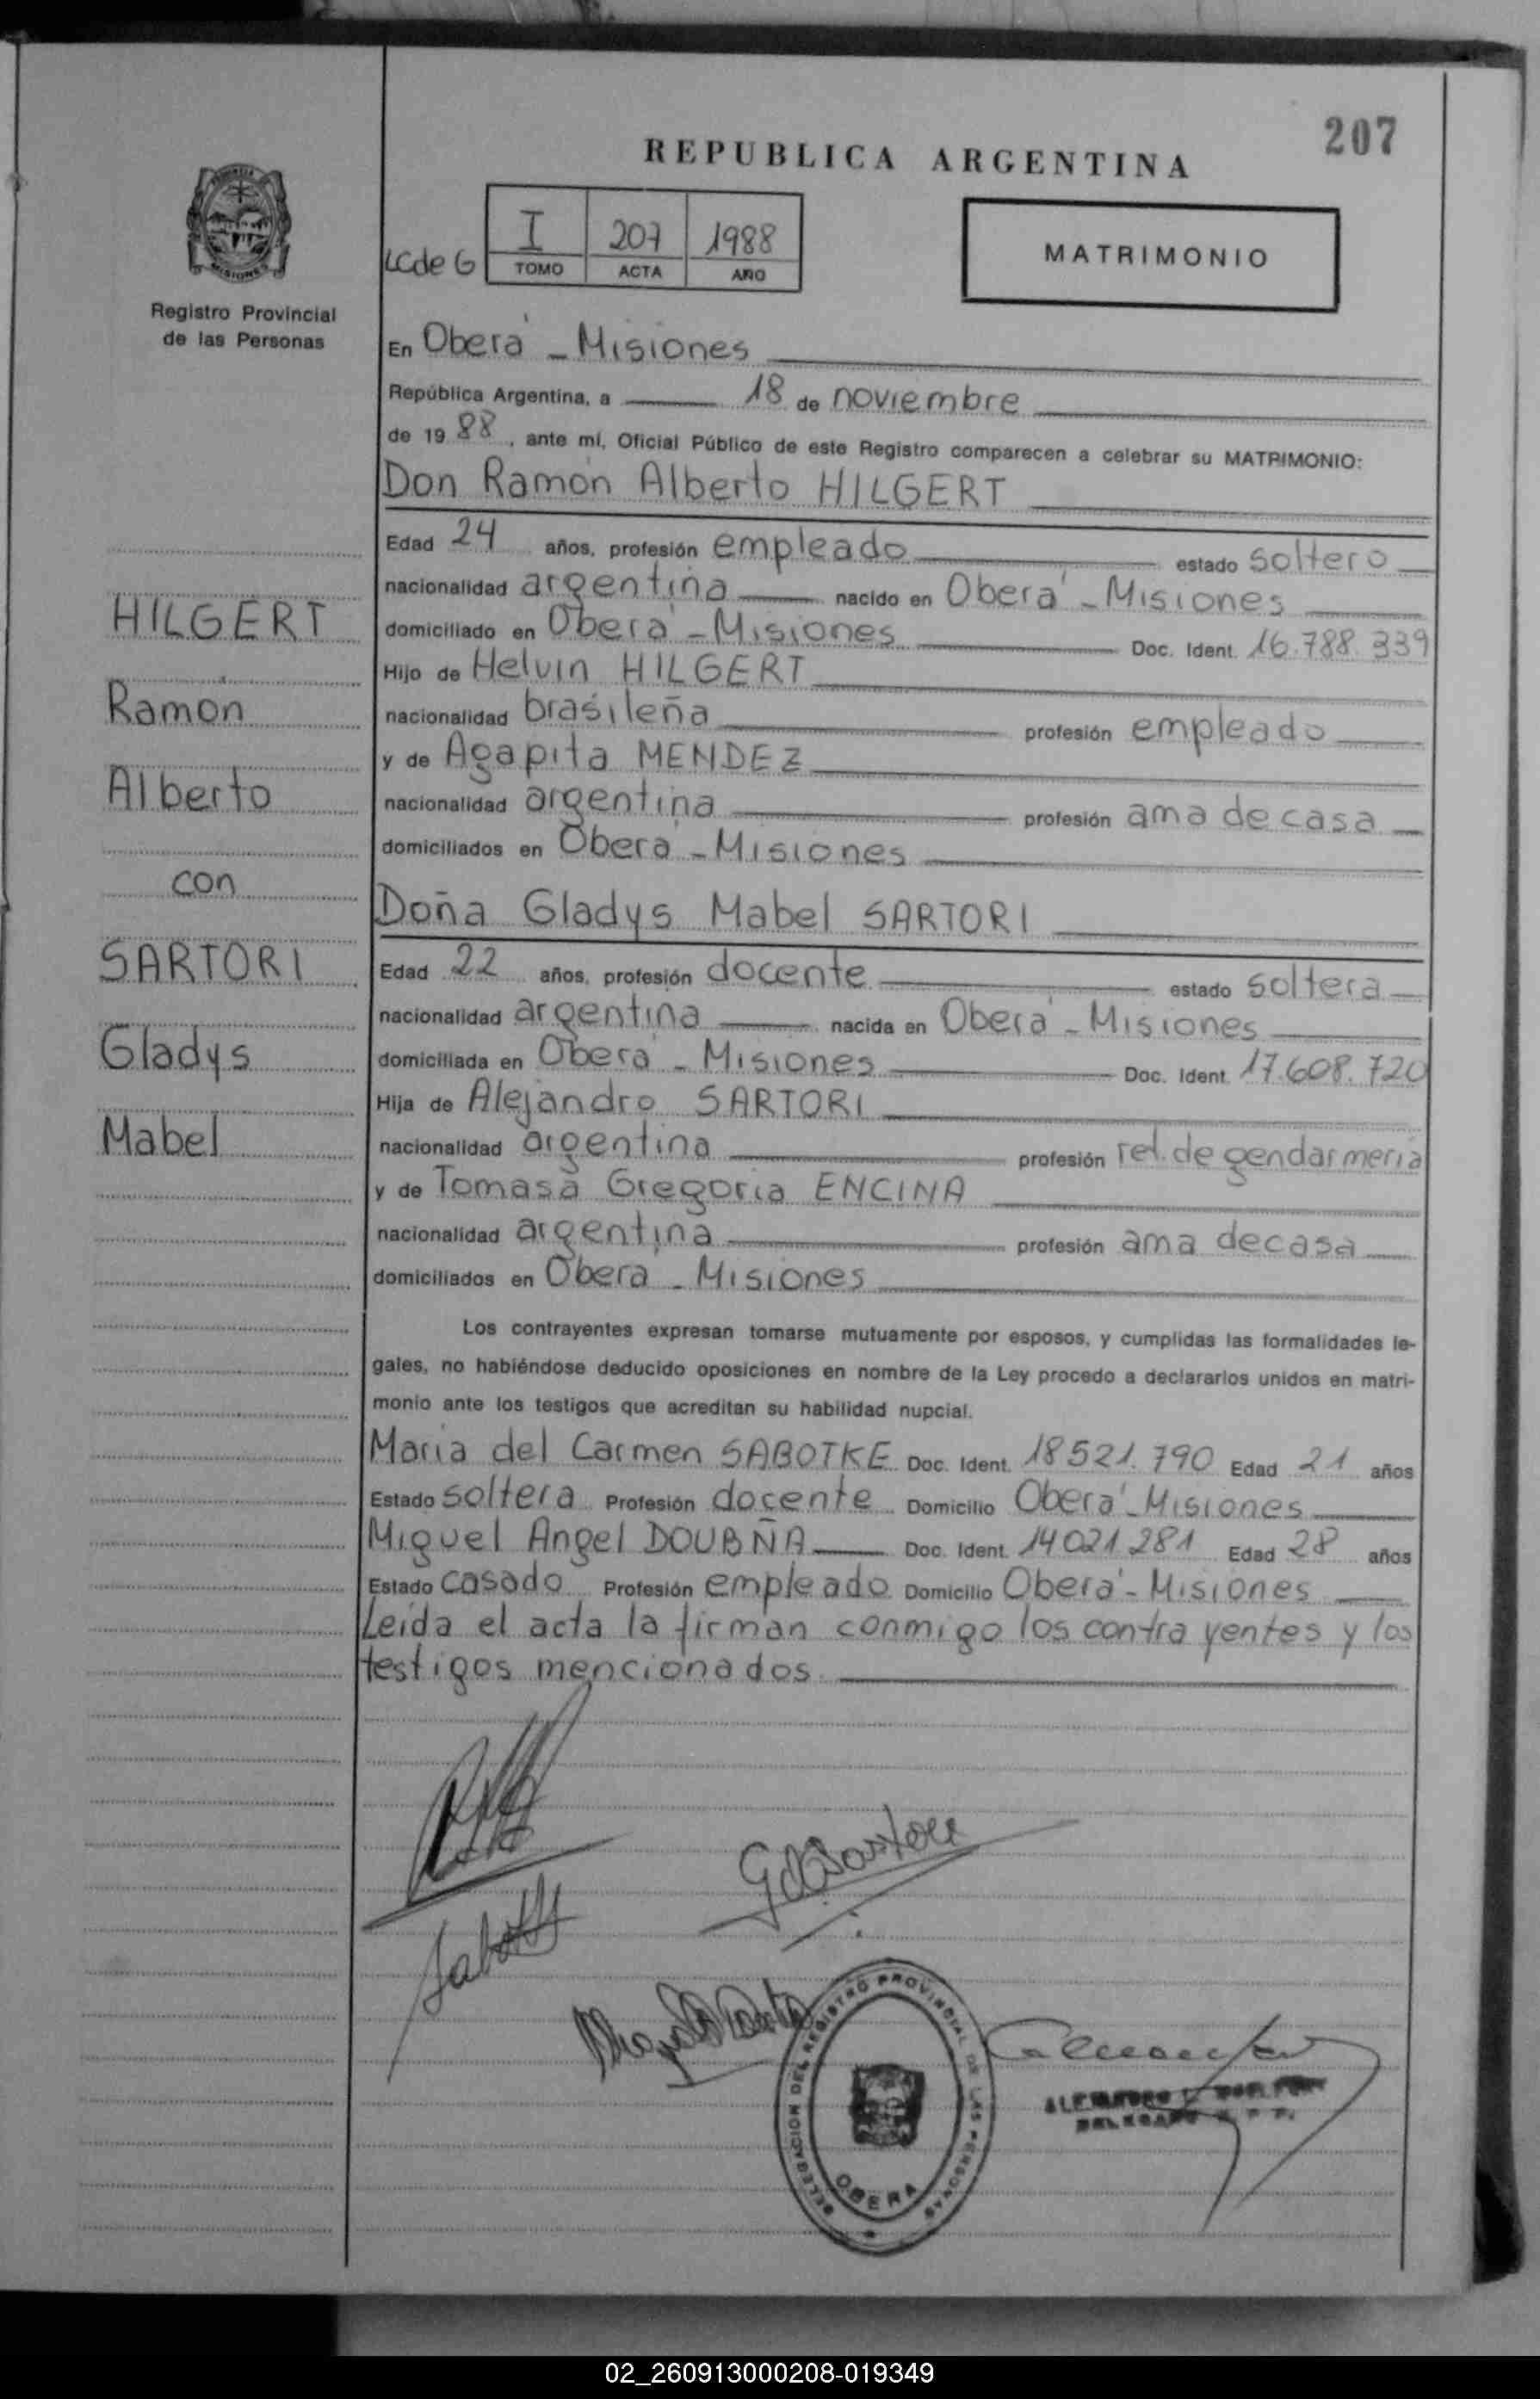 207
REPUBLICA ARGENTINA
PROVINCIA
MISIONES
Registro Provincial
de las Personas
LC de G
I 207 1988
TOMO ACTA AÑO
MATRIMONIO
En Oberá - Misiones
República Argentina, a 18 de noviembre
de 19 88, ante mí, Oficial Público de este Registro comparecen a celebrar su MATRIMONIO:
Don Ramón Alberto HILGERT
Edad 24 años, profesión empleado estado soltero
nacionalidad argentina nacido en Oberá - Misiones
domiciliado en Oberá - Misiones Doc. Ident. 16.788.339
Hijo de Helvin HILGERT
nacionalidad brasileña profesión empleado
y de Agapita MENDEZ
nacionalidad argentina profesión ama de casa
domiciliados en Oberá - Misiones
Doña Gladys Mabel SARTORI
Edad 22 años, profesión docente estado soltera
nacionalidad argentina nacida en Oberá - Misiones
domiciliada en Oberá - Misiones Doc. Ident. 17.608.720
Hija de Alejandro SARTORI
nacionalidad argentina profesión ret. de gendarmería
y de Tomasa Gregoria ENCINA
nacionalidad argentina profesión ama de casa
domiciliados en Oberá - Misiones
HILGERT
Ramón
Alberto
con
SARTORI
Gladys
Mabel
Los contrayentes expresan tomarse mutuamente por esposos, y cumplidas las formalidades le-
gales, no habiéndose deducido oposiciones en nombre de la Ley procedo a declararlos unidos en matri-
monio ante los testigos que acreditan su habilidad nupcial.
María del Carmen SABOTKE Doc. Ident. 18521.790 Edad 21 años
Estado soltera Profesión docente Domicilio Oberá - Misiones
Miguel Angel DOUBÑA Doc. Ident. 14021281 Edad 28 años
Estado casado Profesión empleado Domicilio Oberá - Misiones
Leída el acta la firman conmigo los contrayentes y los
testigos mencionados
DELEGACION DEL REGISTRO PROVINCIAL DE LAS PERSONAS
OBERA
02_260913000208-019349